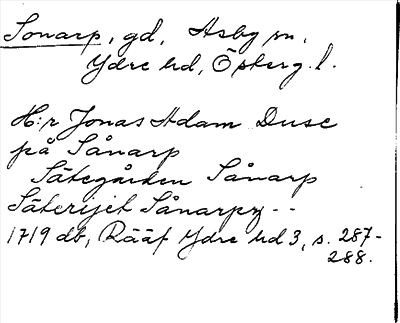 Sonarp, gd, Asby sn,
Ydre hd, Österg. l.
H:r Jonas Adam Duse
på Sånarp
Sätegården Sånarp
Säterijet Sånarp --
1719 db, Rääf Ydre hd 3, s. 287-
288.